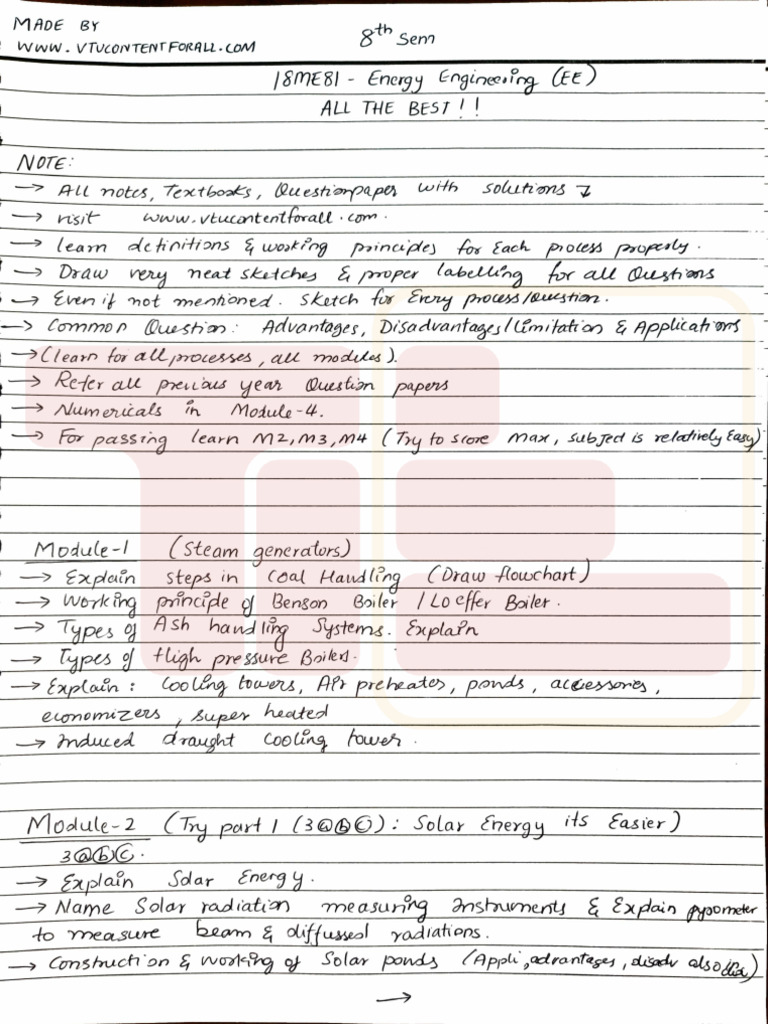 MADE BY
WWW.VTUCONTENTFORALL.COM
8th Sem
18ME81 - Energy Engineering (EE)
ALL THE BEST!!
NOTE:
→ All notes, Textbooks, Questionpaper with solutions ↴
→ visit www.vtucontentforall.com.
→ learn definitions & working principles for Each process properly.
→ Draw very neat sketches & proper labelling for all Questions
→ Even if not mentioned. sketch for Every process/question.
→ Common Question: Advantages, Disadvantages/limitation & Applications
→ (learn for all processes, all modules).
→ Refer all previous year Question papers
→ Numericals in Module-4.
→ For passing learn M2, M3, M4 (Try to score max, subject is relatively Easy)
Module-1 (Steam generators)
→ Explain steps in coal Handling (Draw flowchart)
→ Working principle of Benson Boiler / Loeffer Boiler.
→ Types of Ash handling Systems. Explain
→ Types of High pressure Boilers.
→ Explain: Cooling towers, Air preheates, ponds, accessories,
economizers, super heated
→ Induced draught cooling tower.
Module-2 (Try part 1 (3ⓐⓑⓒ): Solar Energy its Easier)
3ⓐⓑⓒ.
→ Explain Solar Energy.
→ Name Solar radiation measuring Instruments & Explain
to measure beam & diffussed radiations.
→ Construction & working of Solar ponds (Appli, advantages, disadv also
→